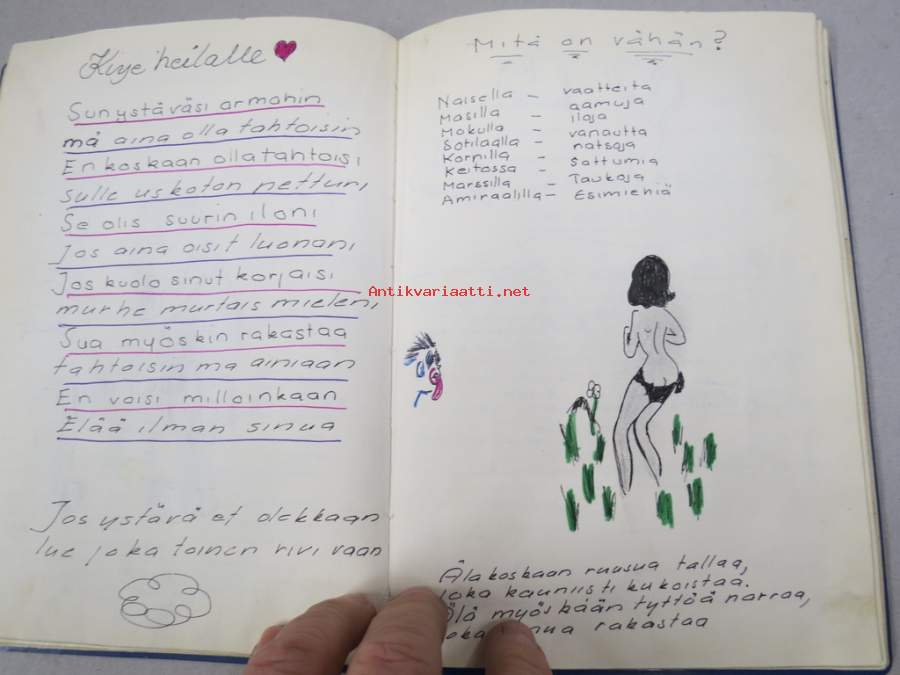 Kirje heilalle
Sun ystäväsi armahin
mä aina olla tahtoisin
En koskaan olla tahtoisi
sulle uskoton petturi
Se olis suurin iloni
Jos aina oisit luonani
Jos kuolo sinut korjaisi
murhe murtais mieleni
Sua myöskin rakastaa
tahtoisin ma ainiaan
En voisi milloinkaan
Elää ilman sinua
Jos ystävä et olekkaan
lue joka toinen rivi vaan
Mitä on vähän?
Naisella - vaatteita
Masilla - aamuja
Mokulla - iloja
Sotilaalla - vanautta
Kornilla - natsoja
Keitossa - Sattumia
Marssilla - Taukoja
Amiraalilla - Esimiehiä
Antikvariaatti.net
Älä koskaan ruusua tallaa,
joka kauniisti kukoistaa.
Älä myöskään tyttöä narraa,
rakastaa